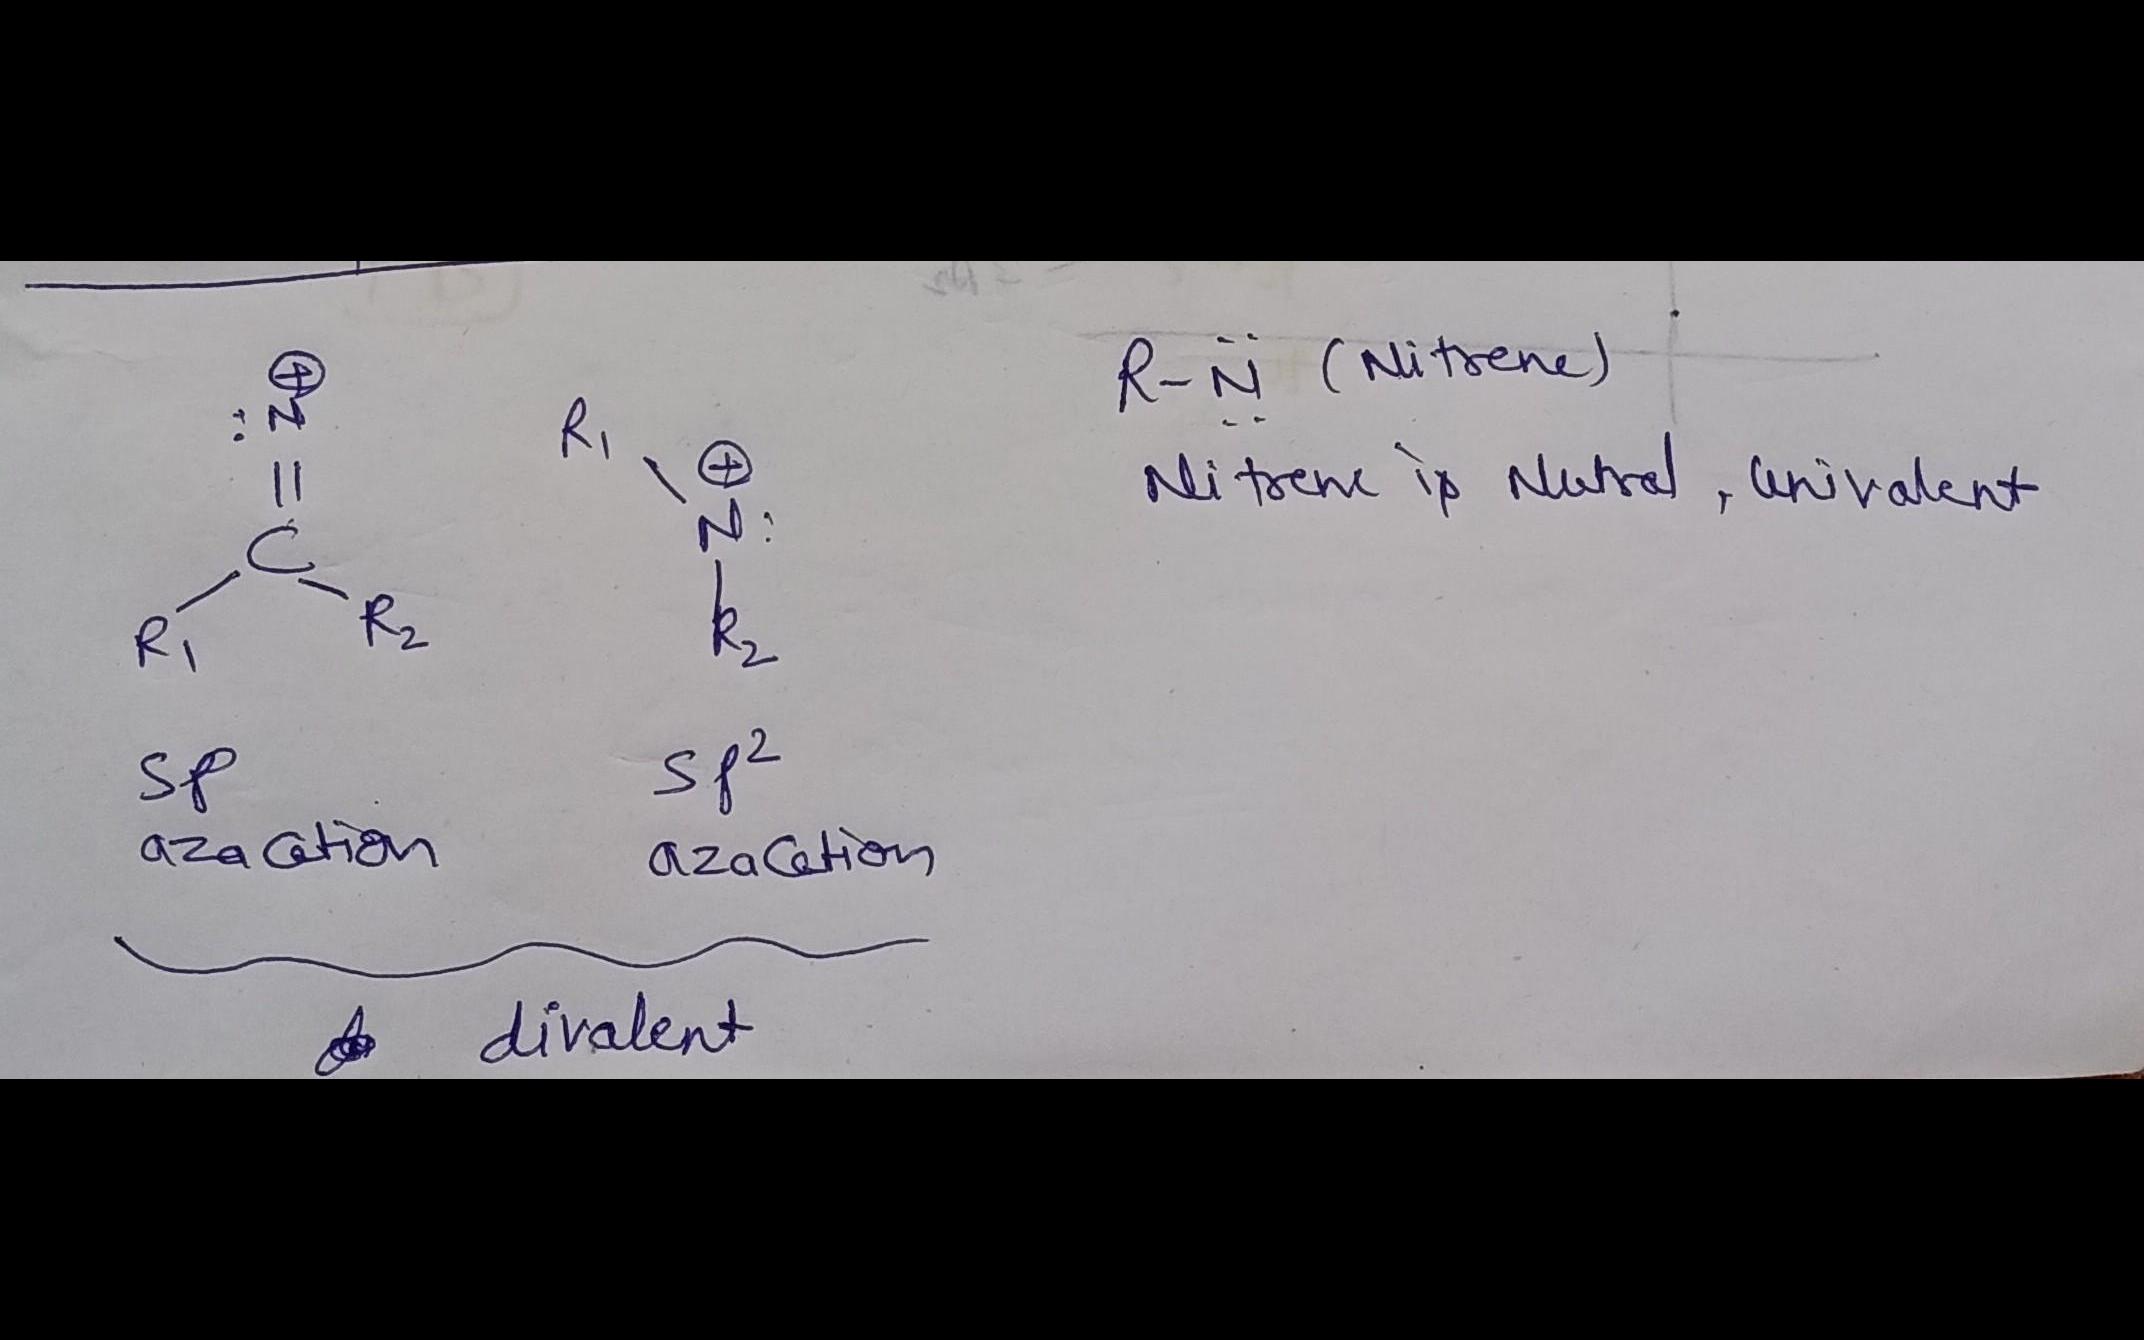 ⊕
:N
||
C
R1 R2
sp
azacation
R1
⊕
N:
R2
sp²
azacation
divalent
R-N̈ (Nitrene)
Nitrene is Nutral, Univalent